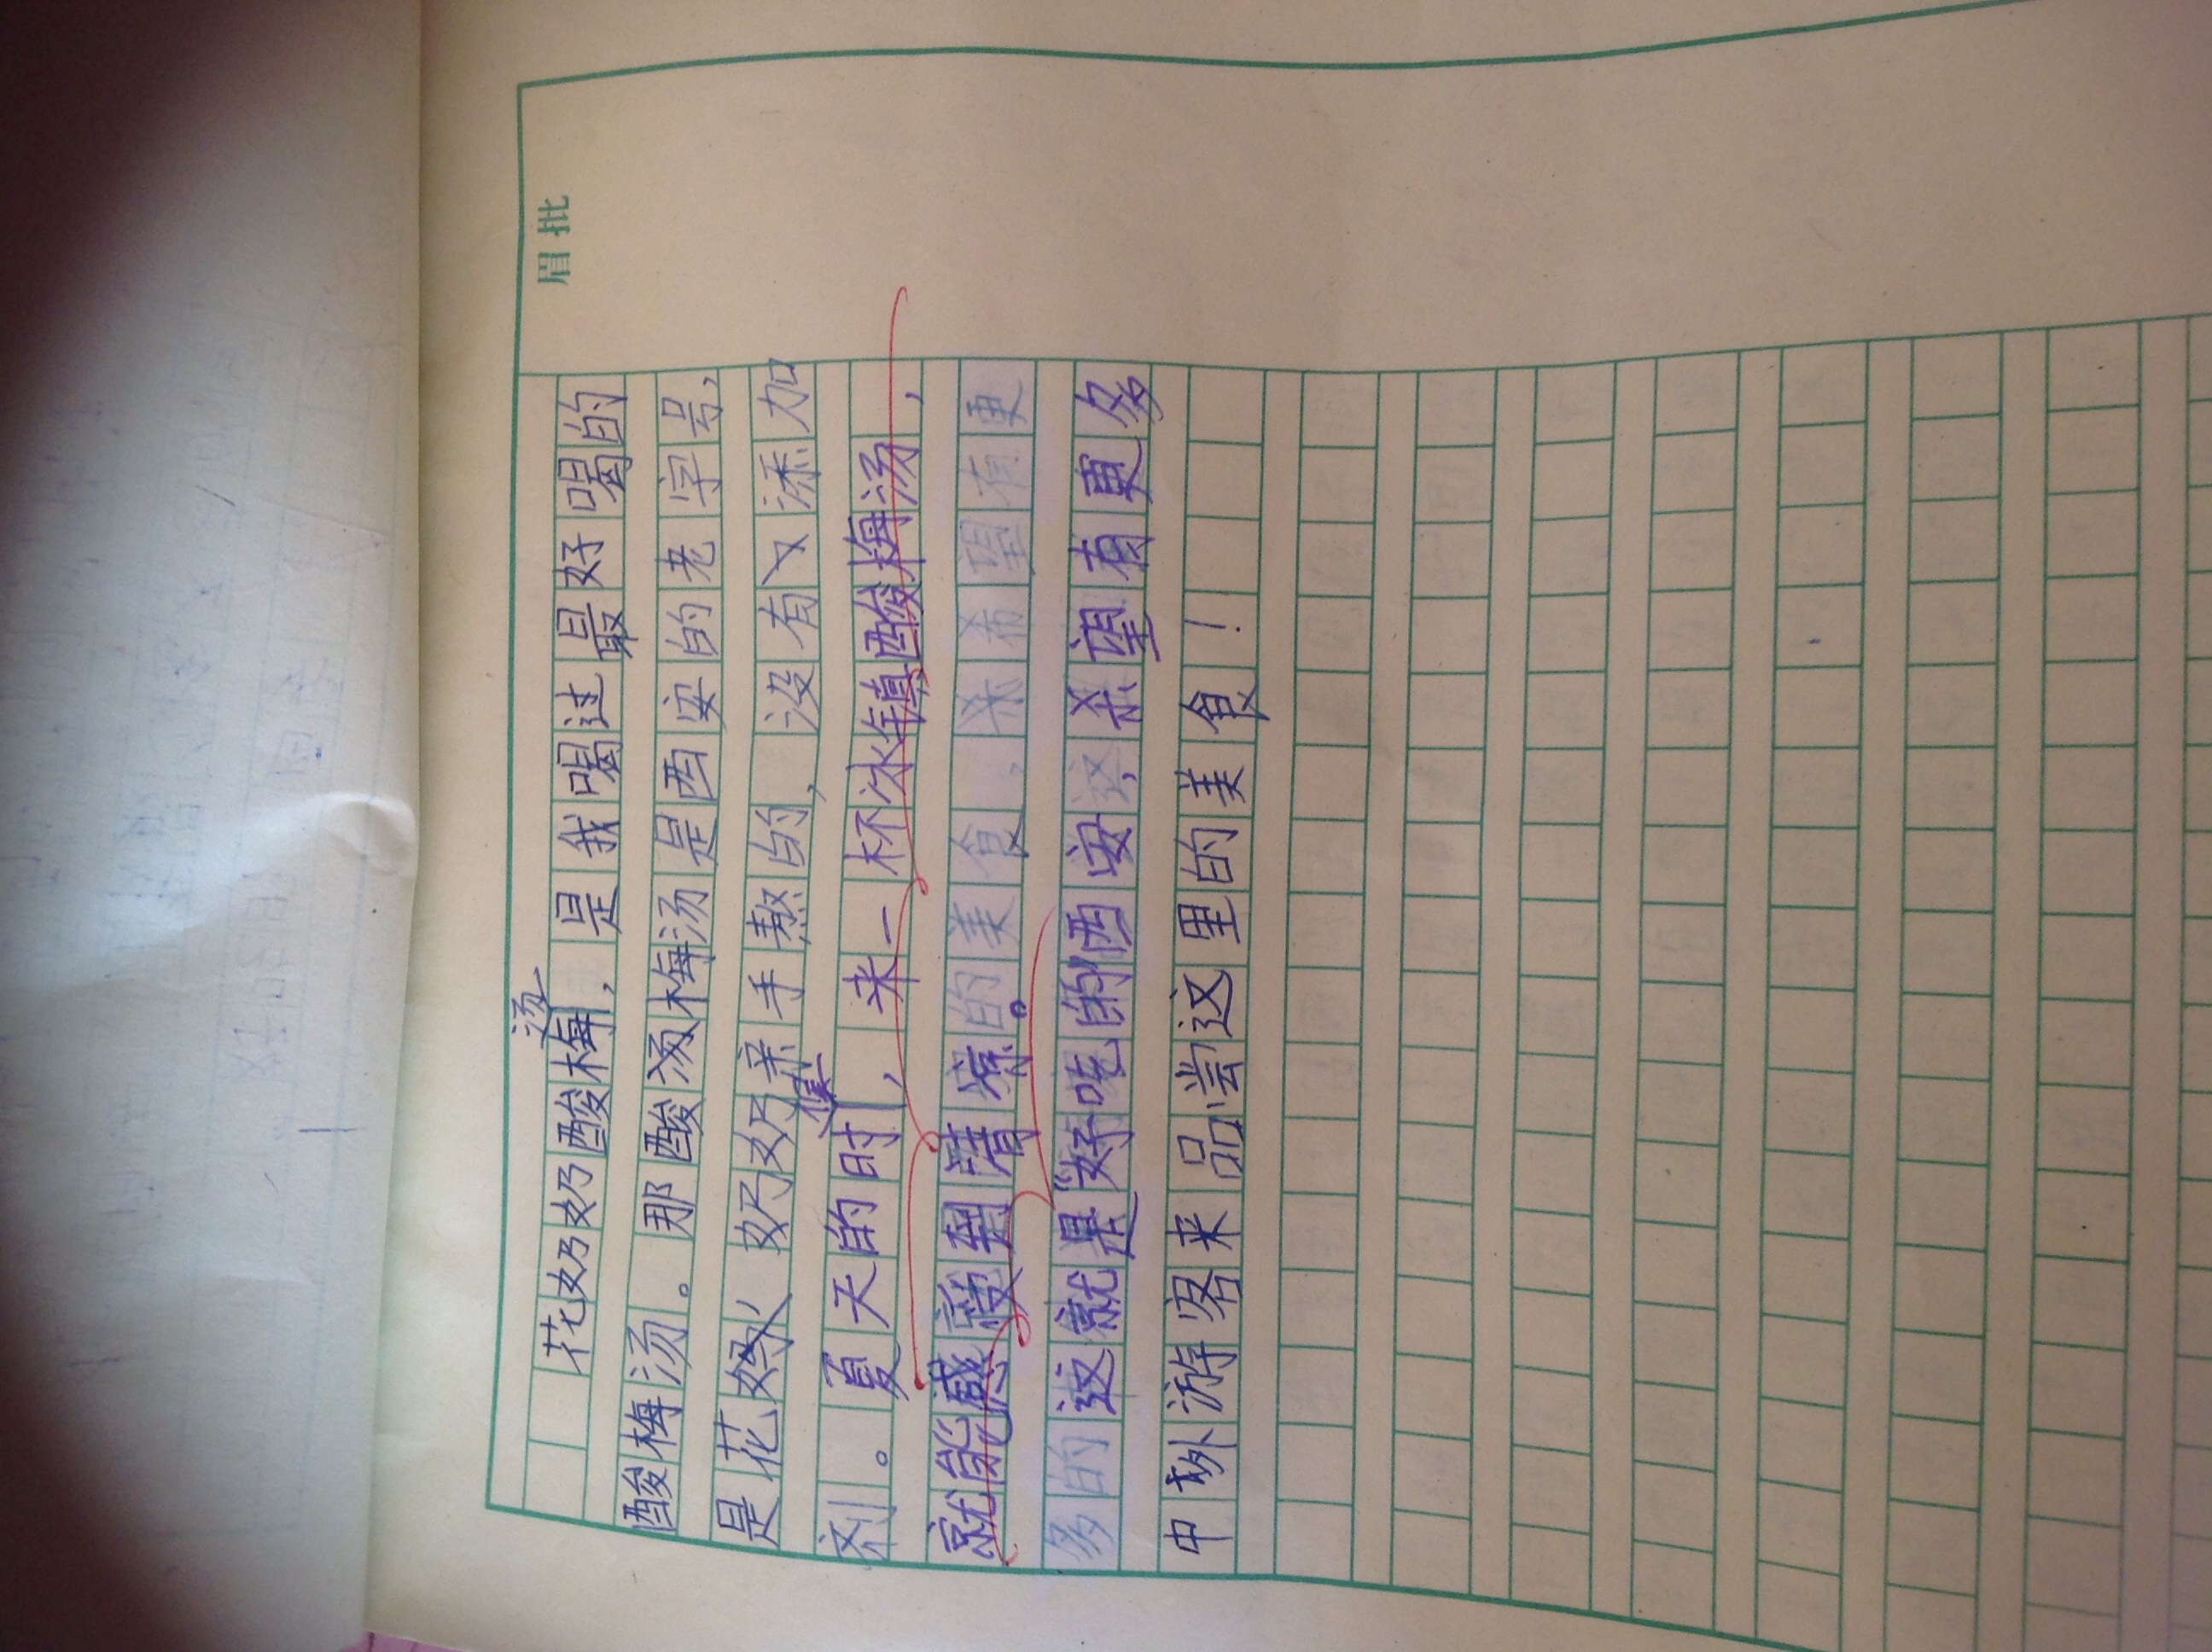 眉批
花奶奶酸梅汤，是我喝过最好喝的
酸梅汤。那酸梅汤是西安的老字号，
是花奶奶亲手熬的，没有添加
剂。夏天的时候，来一杯冰镇酸梅汤，
就能感受到清凉。
这就是“好吃的”西安，希望有更多
中外游客来品尝这里的美食！